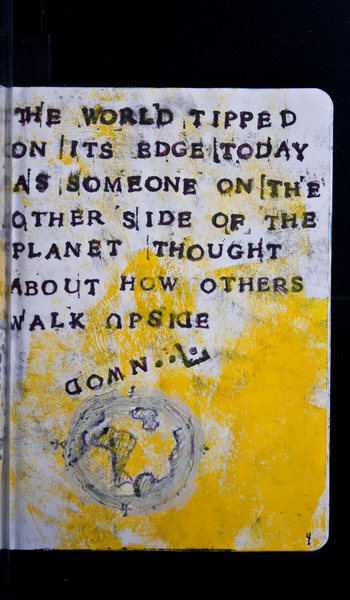 THE WORLD TIPPED
ON ITS EDGE TODAY
AS SOMEONE ON THE
OTHER SIDE OF THE
PLANET THOUGHT
ABOUT HOW OTHERS
WALK UPSIDE
DOWN...